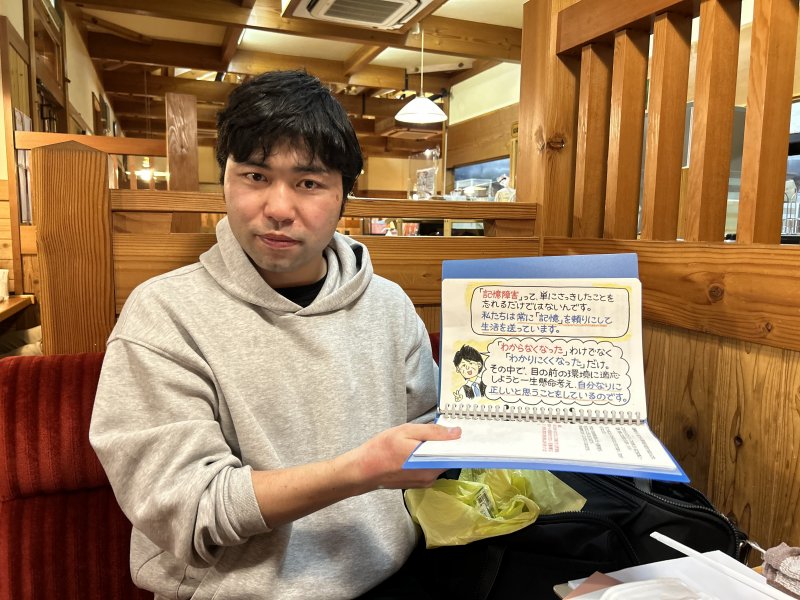 「記憶障害」って、単にさっきしたことを
忘れるだけではないんです。
私たちは常に「記憶」を頼りにして
生活を送っています。
「わからなくなった」わけでなく
「わかりにくくなった」だけ。
その中で、目の前の環境に適応
しようと一生懸命考え、自分なりに
正しいと思うことをしているのです。